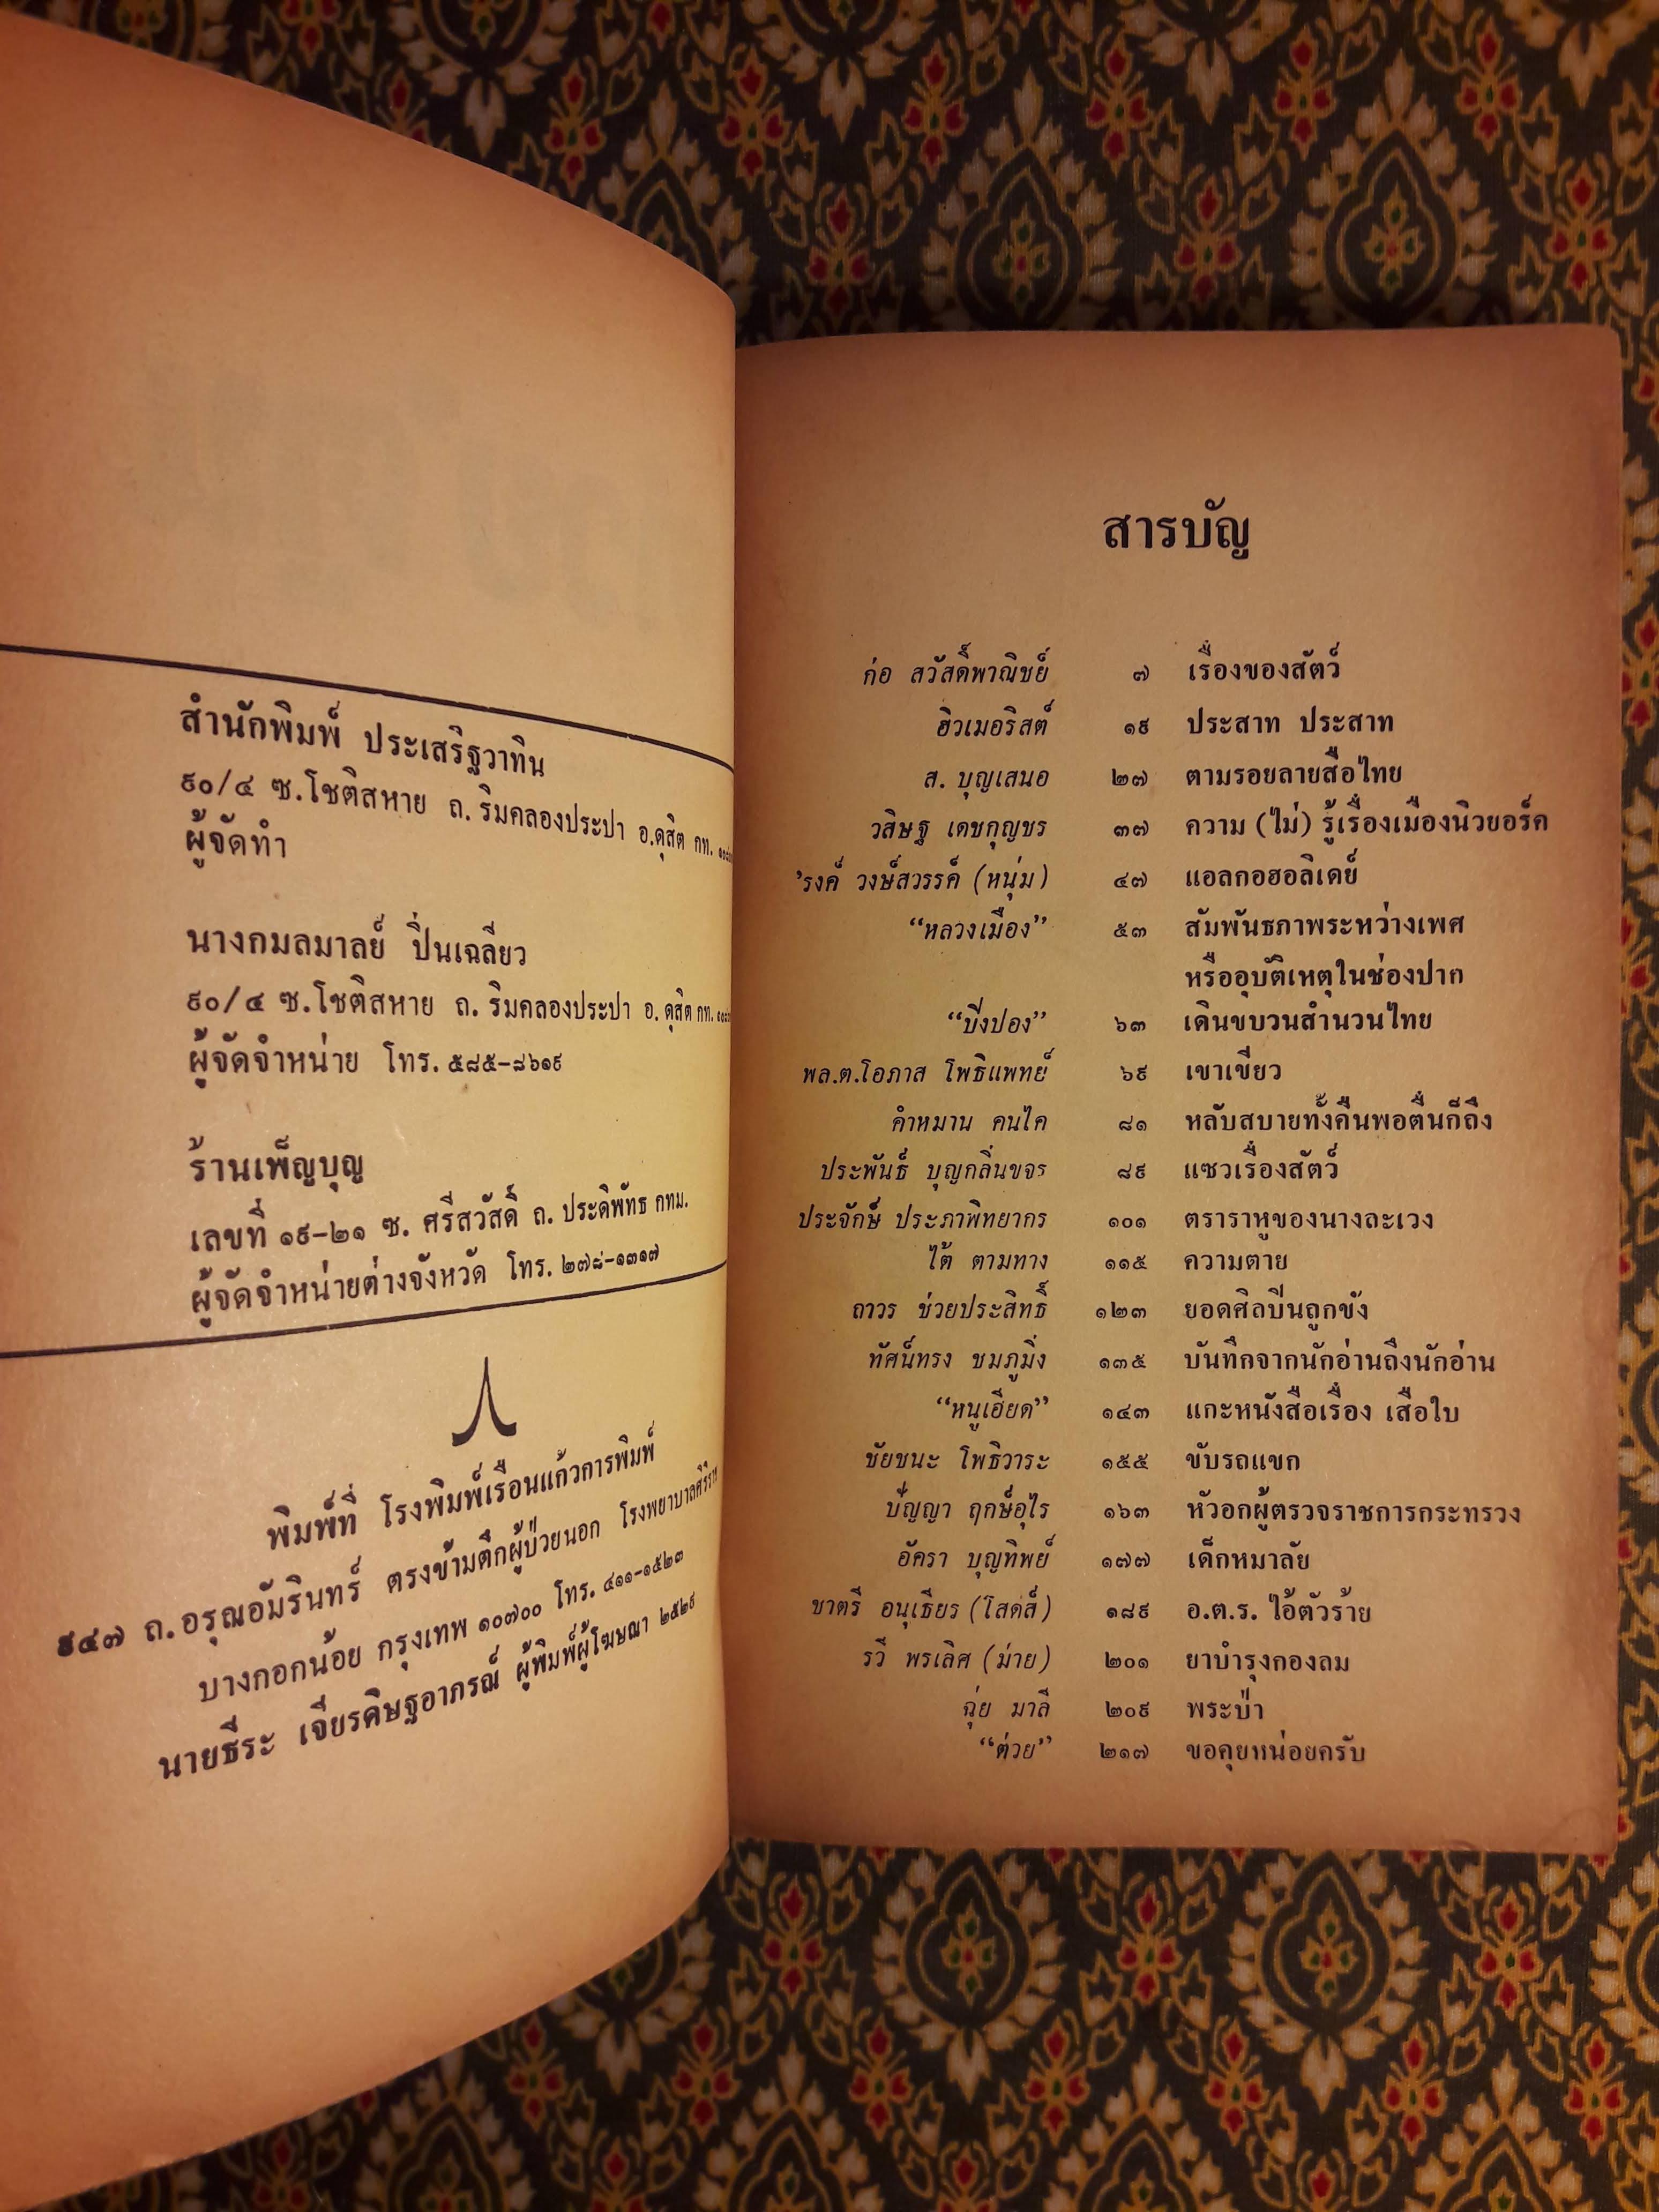 สำนักพิมพ์ ประเสริฐวาทิน
๙๐/๔ ซ.โชติสหาย ถ. ริมคลองประปา อ.ดุสิต กท.
ผู้จัดทำ
นางกมลมาลย์ ปิ่นเฉลียว
๙๐/๔ ซ.โชติสหาย ถ. ริมคลองประปา อ. ดุสิต กท.
ผู้จัดจำหน่าย โทร. ๕๘๕-๘๖๑๙
ร้านเพ็ญบุญ
เลขที่ ๑๙-๒๑ ซ. ศรีสวัสดิ์ ถ. ประดิพัทธ กทม.
ผู้จัดจำหน่ายต่างจังหวัด โทร. ๒๗๘-๑๓๑๗
พิมพ์ที่ โรงพิมพ์เรือนแก้วการพิมพ์
๙๔๗ ถ. อรุณอัมรินทร์ ตรงข้ามตึกผู้ป่วยนอก โรงพยาบาลศิริราช
บางกอกน้อย กรุงเทพ ๑๐๗๐๐ โทร. ๔๑๑-๑๕๒๓
นายธีระ เจียรดิษฐอาภรณ์ ผู้พิมพ์ผู้โฆษณา ๒๕๒๙
สารบัญ
ก่อ สวัสดิ์พาณิชย์ ๗ เรื่องของสัตว์
ฮิวเมอริสต์ ๑๙ ประสาท ประสาท
ส. บุญเสนอ ๒๗ ตามรอยลายสือไทย
วสิษฐ เดชกุญชร ๓๗ ความ (ไม่) รู้เรื่องเมืองนิวยอร์ค
’รงค์ วงษ์สวรรค์ (หนุ่ม) ๔๗ แอลกอฮอลิเดย์
“หลวงเมือง” ๕๓ สัมพันธภาพระหว่างเพศ
หรืออุบัติเหตุในช่องปาก
“ปิงปอง” ๖๓ เดินขบวนสำนวนไทย
พล.ต.โอภาส โพธิแพทย์ ๖๙ เขาเขียว
คำหมาน คนไค ๘๑ หลับสบายทั้งคืนพอตื่นก็ถึง
ประพันธ์ บุญกลิ่นขจร ๘๙ แซวเรื่องสัตว์
ประจักษ์ ประภาพิทยากร ๑๐๑ ตราราหูของนางละเวง
ไต้ ตามทาง ๑๑๕ ความตาย
ถาวร ช่วยประสิทธิ์ ๑๒๓ ยอดศิลปินถูกขัง
ทัศน์ทรง ชมภูมิ่ง ๑๓๕ บันทึกจากนักอ่านถึงนักอ่าน
“หนูเฮียด” ๑๔๓ แกะหนังสือเรื่อง เสือใบ
ชัยชนะ โพธิวาระ ๑๕๕ ขับรถแขก
ปัญญา ฤกษ์อุไร ๑๖๓ หัวอกผู้ตรวจราชการกระทรวง
อัครา บุญทิพย์ ๑๗๗ เด็กหมาลัย
ชาตรี อนุเธียร (โสดสี่) ๑๘๙ อ.ต.ร. ไอ้ตัวร้าย
รวี พรเลิศ (ม่าย) ๒๐๑ ยาบำรุงกองถม
ฉุ่ย มาลี ๒๐๙ พระป่า
“ต่วย” ๒๑๗ ขอคุยหน่อยครับ